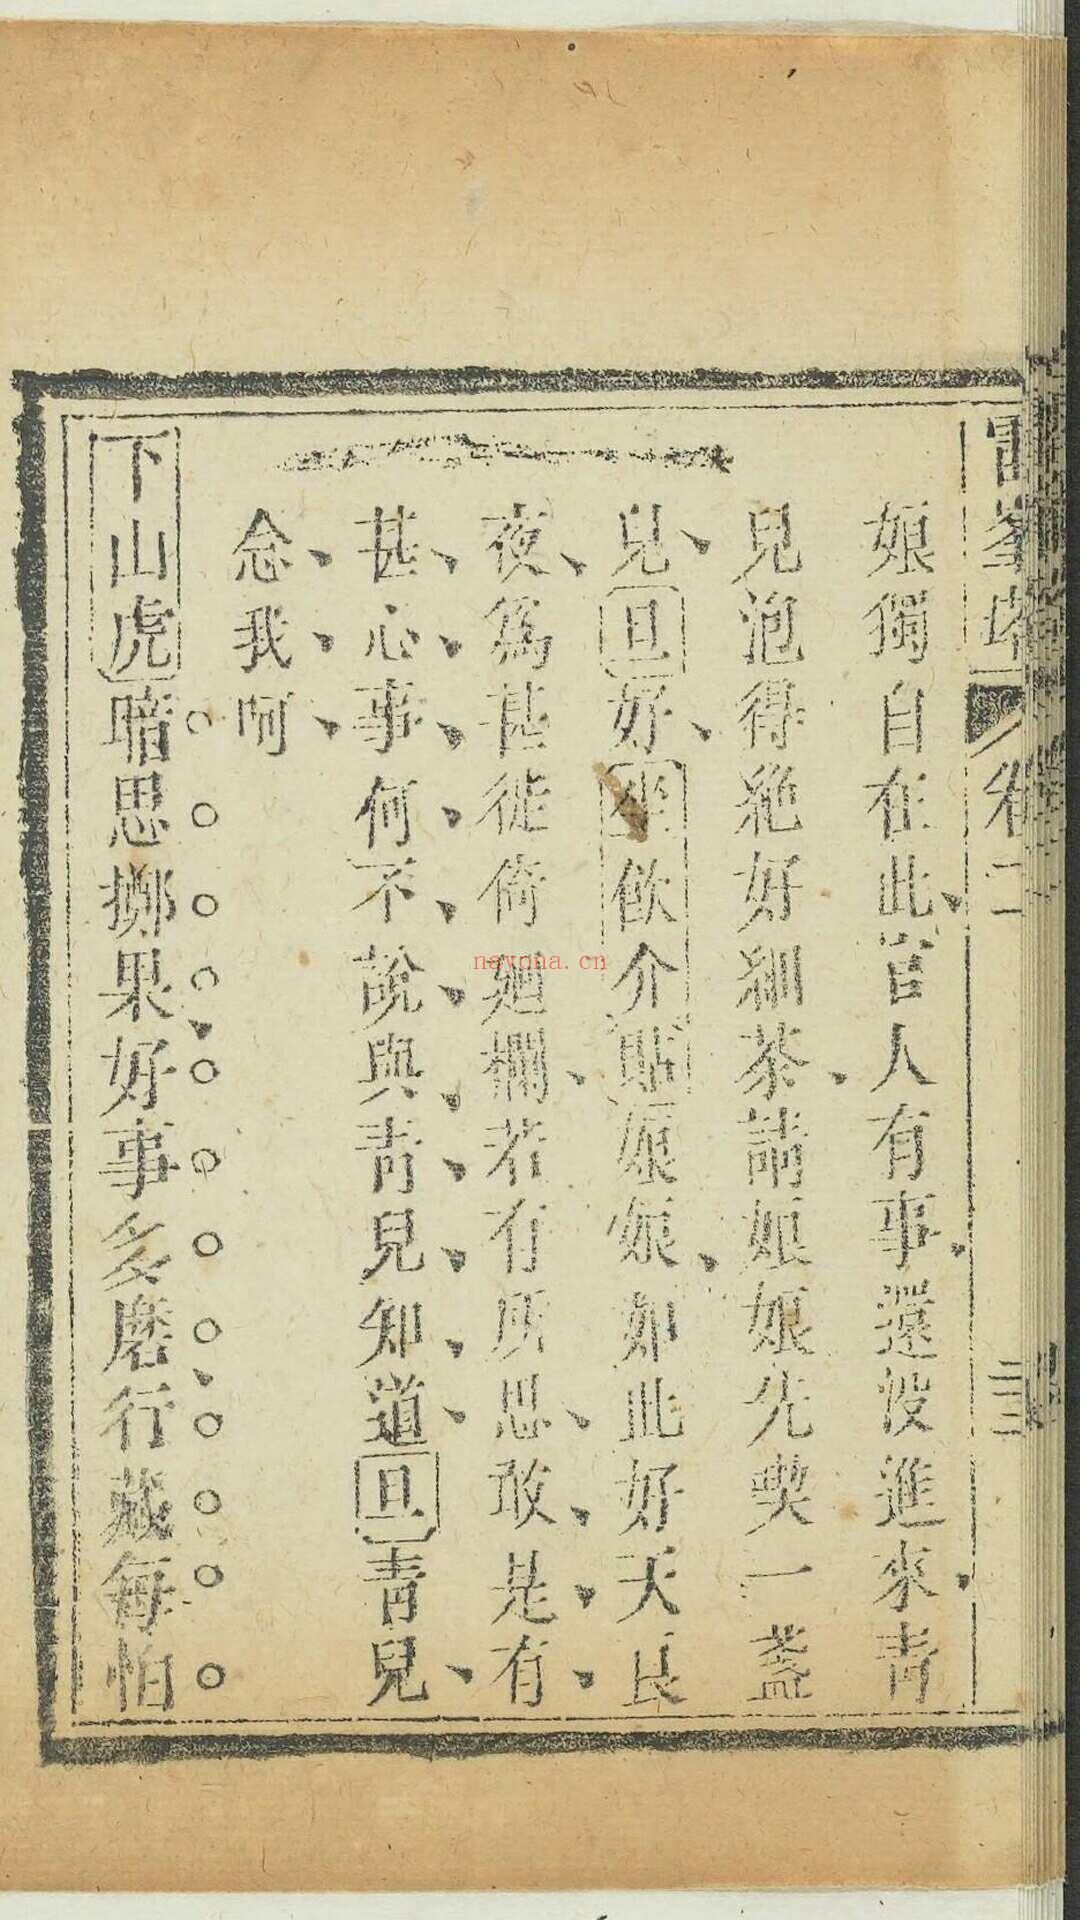 雷峯塔 卷二 三
娘獨自在此官人有事還没進來青
兒泡得絶好細茶請娘娘先喫一盞
兒旦好坐飲介貼娘娘如此好天良
夜爲甚徙倚廻欄若有所思敢是有
甚心事何不說與青兒知道旦青兒
念我呵
下山虎暗思擲果好事多磨行藏每怕
nayona.cn